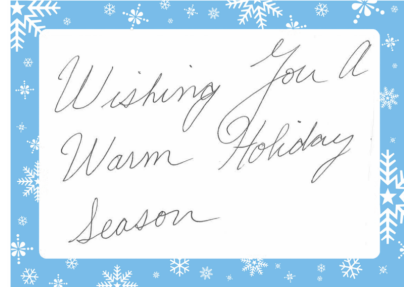 Wishing You A
Warm Holiday
Season